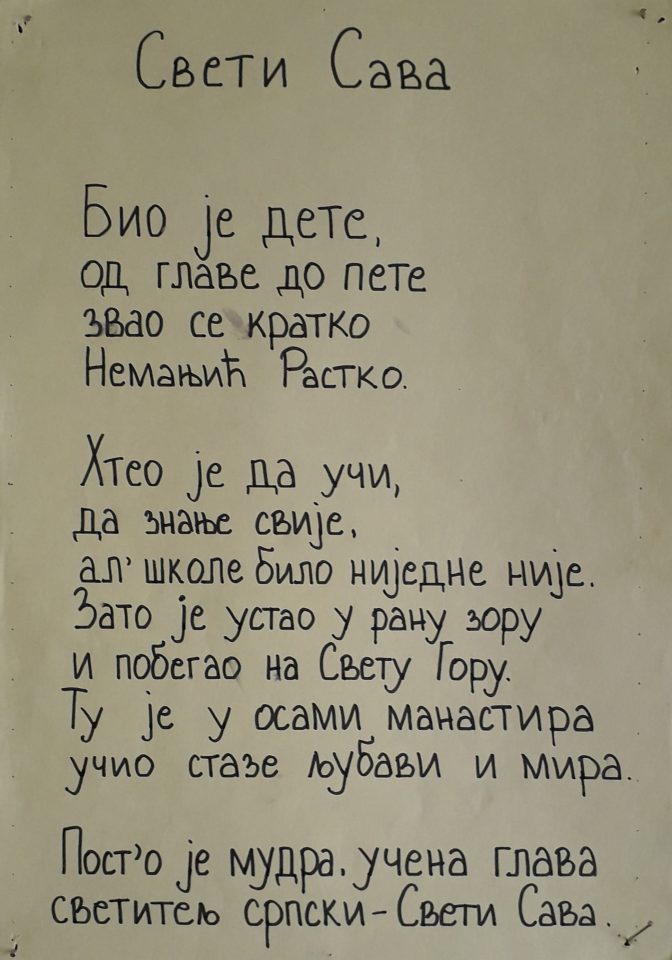 Свети Сава
Био је дете,
од главе до пете
звао се кратко
Немањић Растко.
Хтео је да учи,
да знање свије,
ал' школе било ниједне није.
Зато је устао у рану зору
и побегао на Свету Гору.
Ту је у осами манастира
учио стазе љубави и мира.
Пост'о је мудра. учена глава
светитељ српски-Свети Сава.